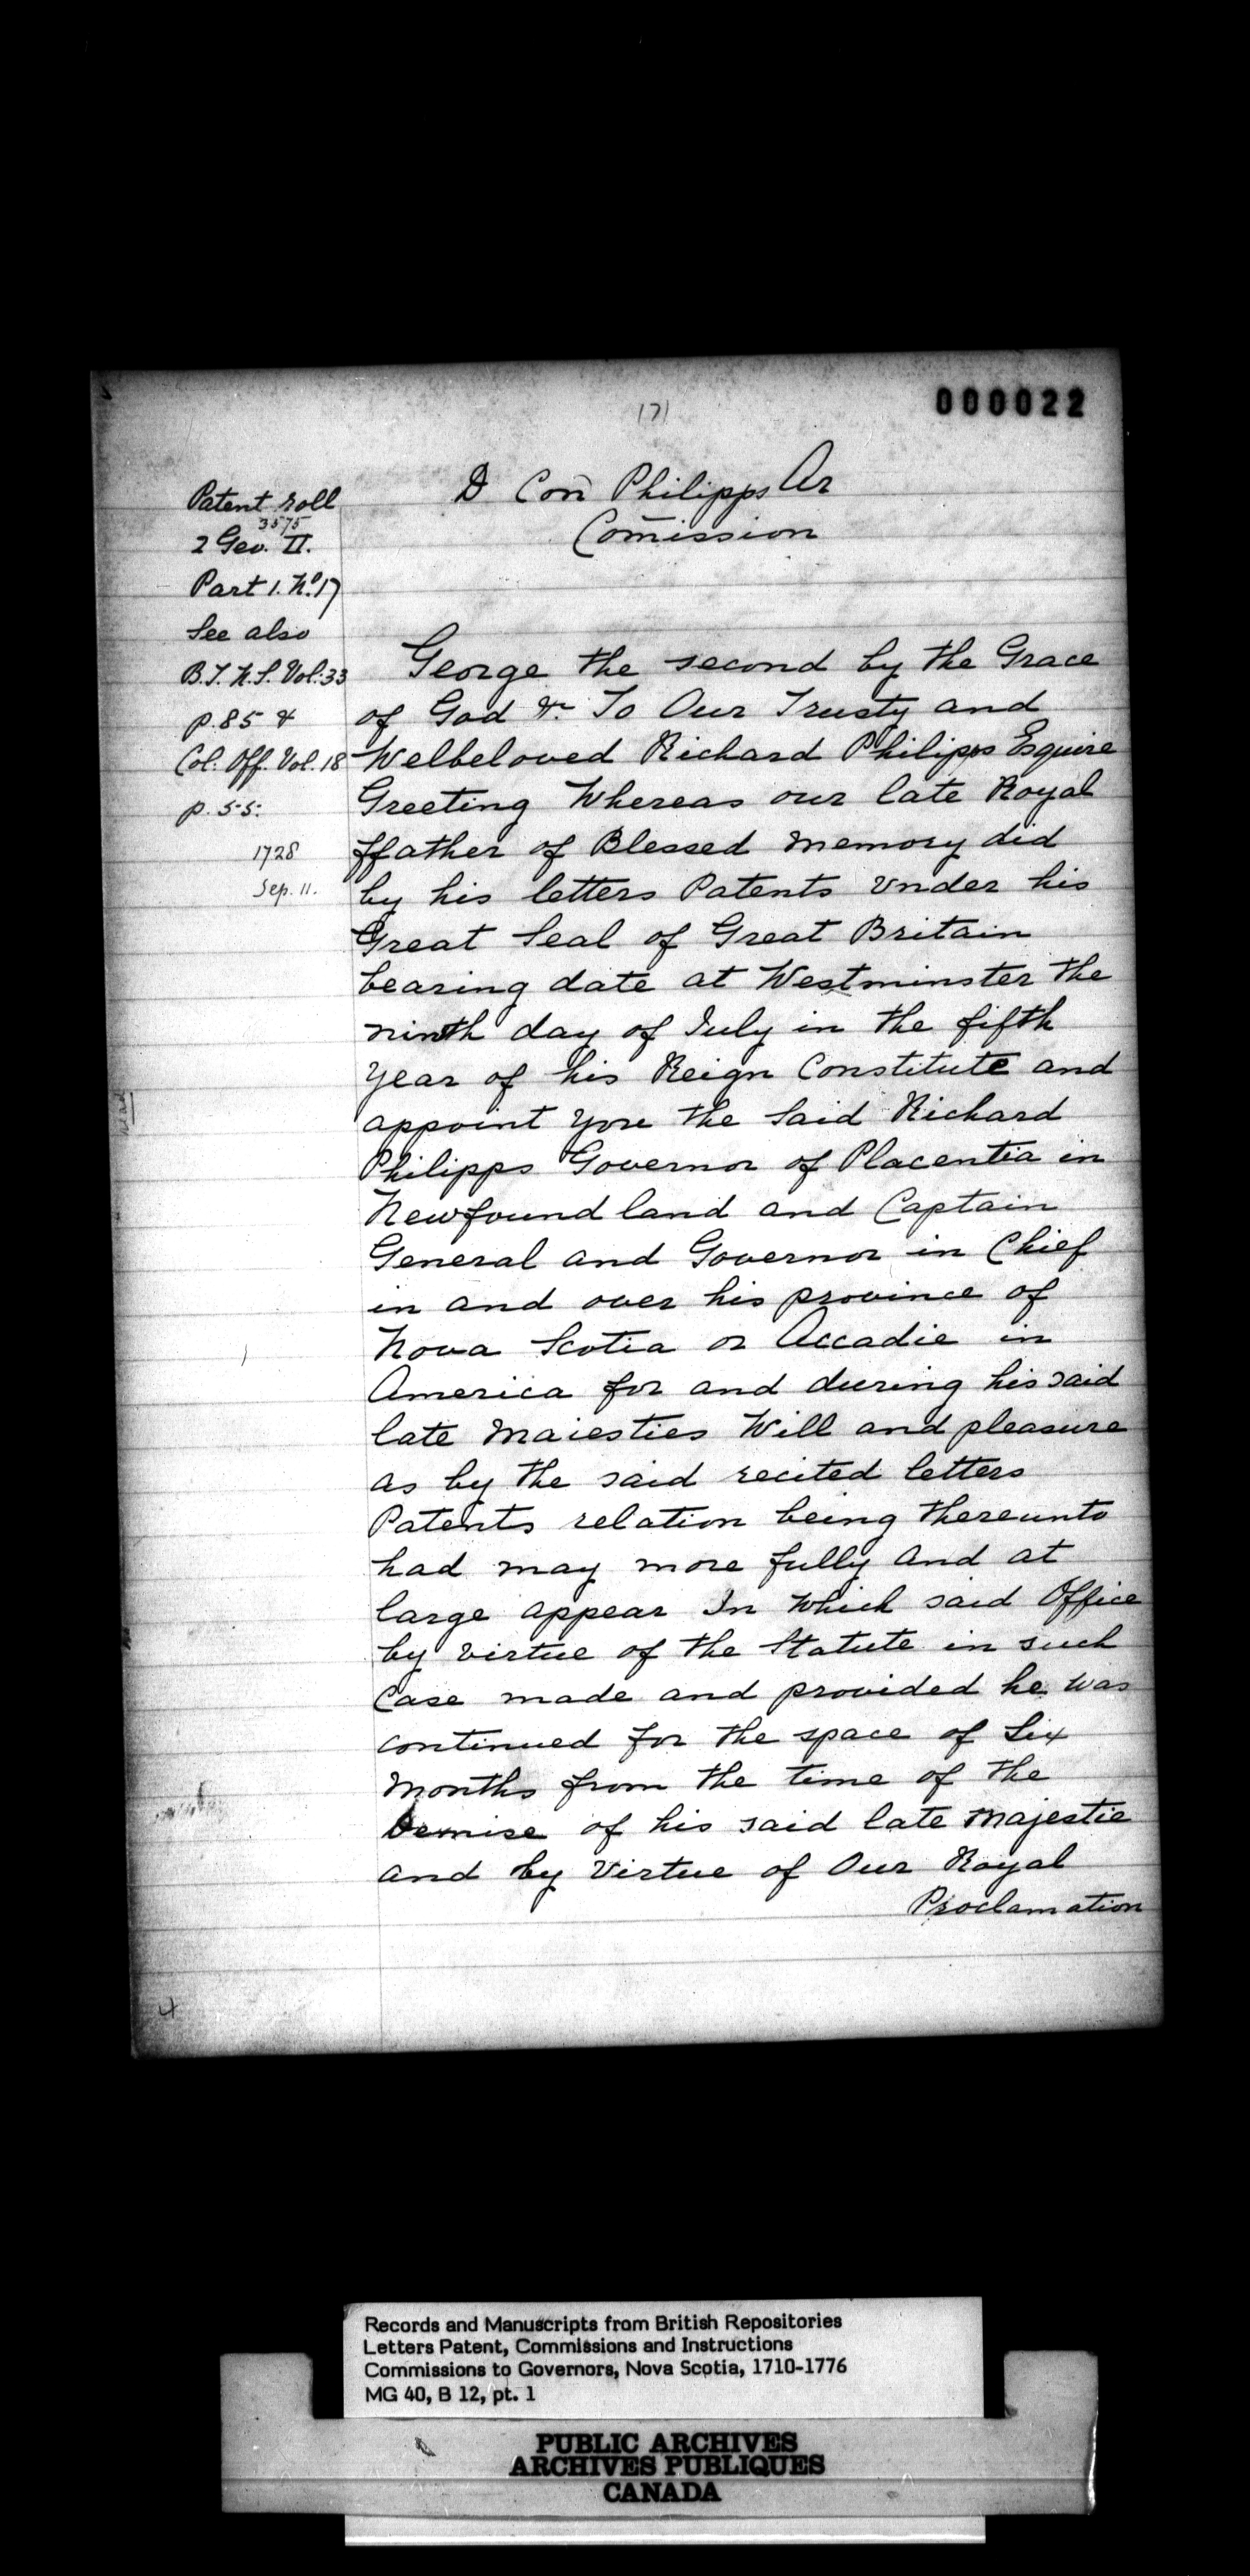 000022
171
D Con̄ Philipps Ar
Com̄ission
Patent roll
3575
2 Geo. II.
Part 1. No. 17
See also
B.T. N.S. Vol. 33
p. 85 &
Col. Off. Vol. 18
p. 55.
1728
Sep. 11.
George the second by the Grace
of God &c To Our Trusty and
Welbeloved Richard Philipps Esquire
Greeting Whereas our late Royal
ffather of Blessed Memory did
by his letters Patents Vnder his
Great Seal of Great Britain
bearing date at Westminster the
ninth day of July in the fifth
Year of his Reign Constitute and
appoint you the Said Richard
Philipps Governor of Placentia in
Newfoundland and Captain
General and Governor in Chief
in and over his province of
Nova Scotia or Accadie in
America for and during his said
late Maiesties Will and pleasure
as by the said recited letters
Patents relation being thereunto
had may more fully and at
large appear In Which said Office
by virtue of the Statute in such
Case made and provided he was
continued for the space of Six
Months from the time of the
Demise of his said late Majestie
and by Virtue of Our Royal
Proclamation
Records and Manuscripts from British Repositories
Letters Patent, Commissions and Instructions
Commissions to Governors, Nova Scotia, 1710-1776
MG 40, B 12, pt. 1
PUBLIC ARCHIVES
ARCHIVES PUBLIQUES
CANADA